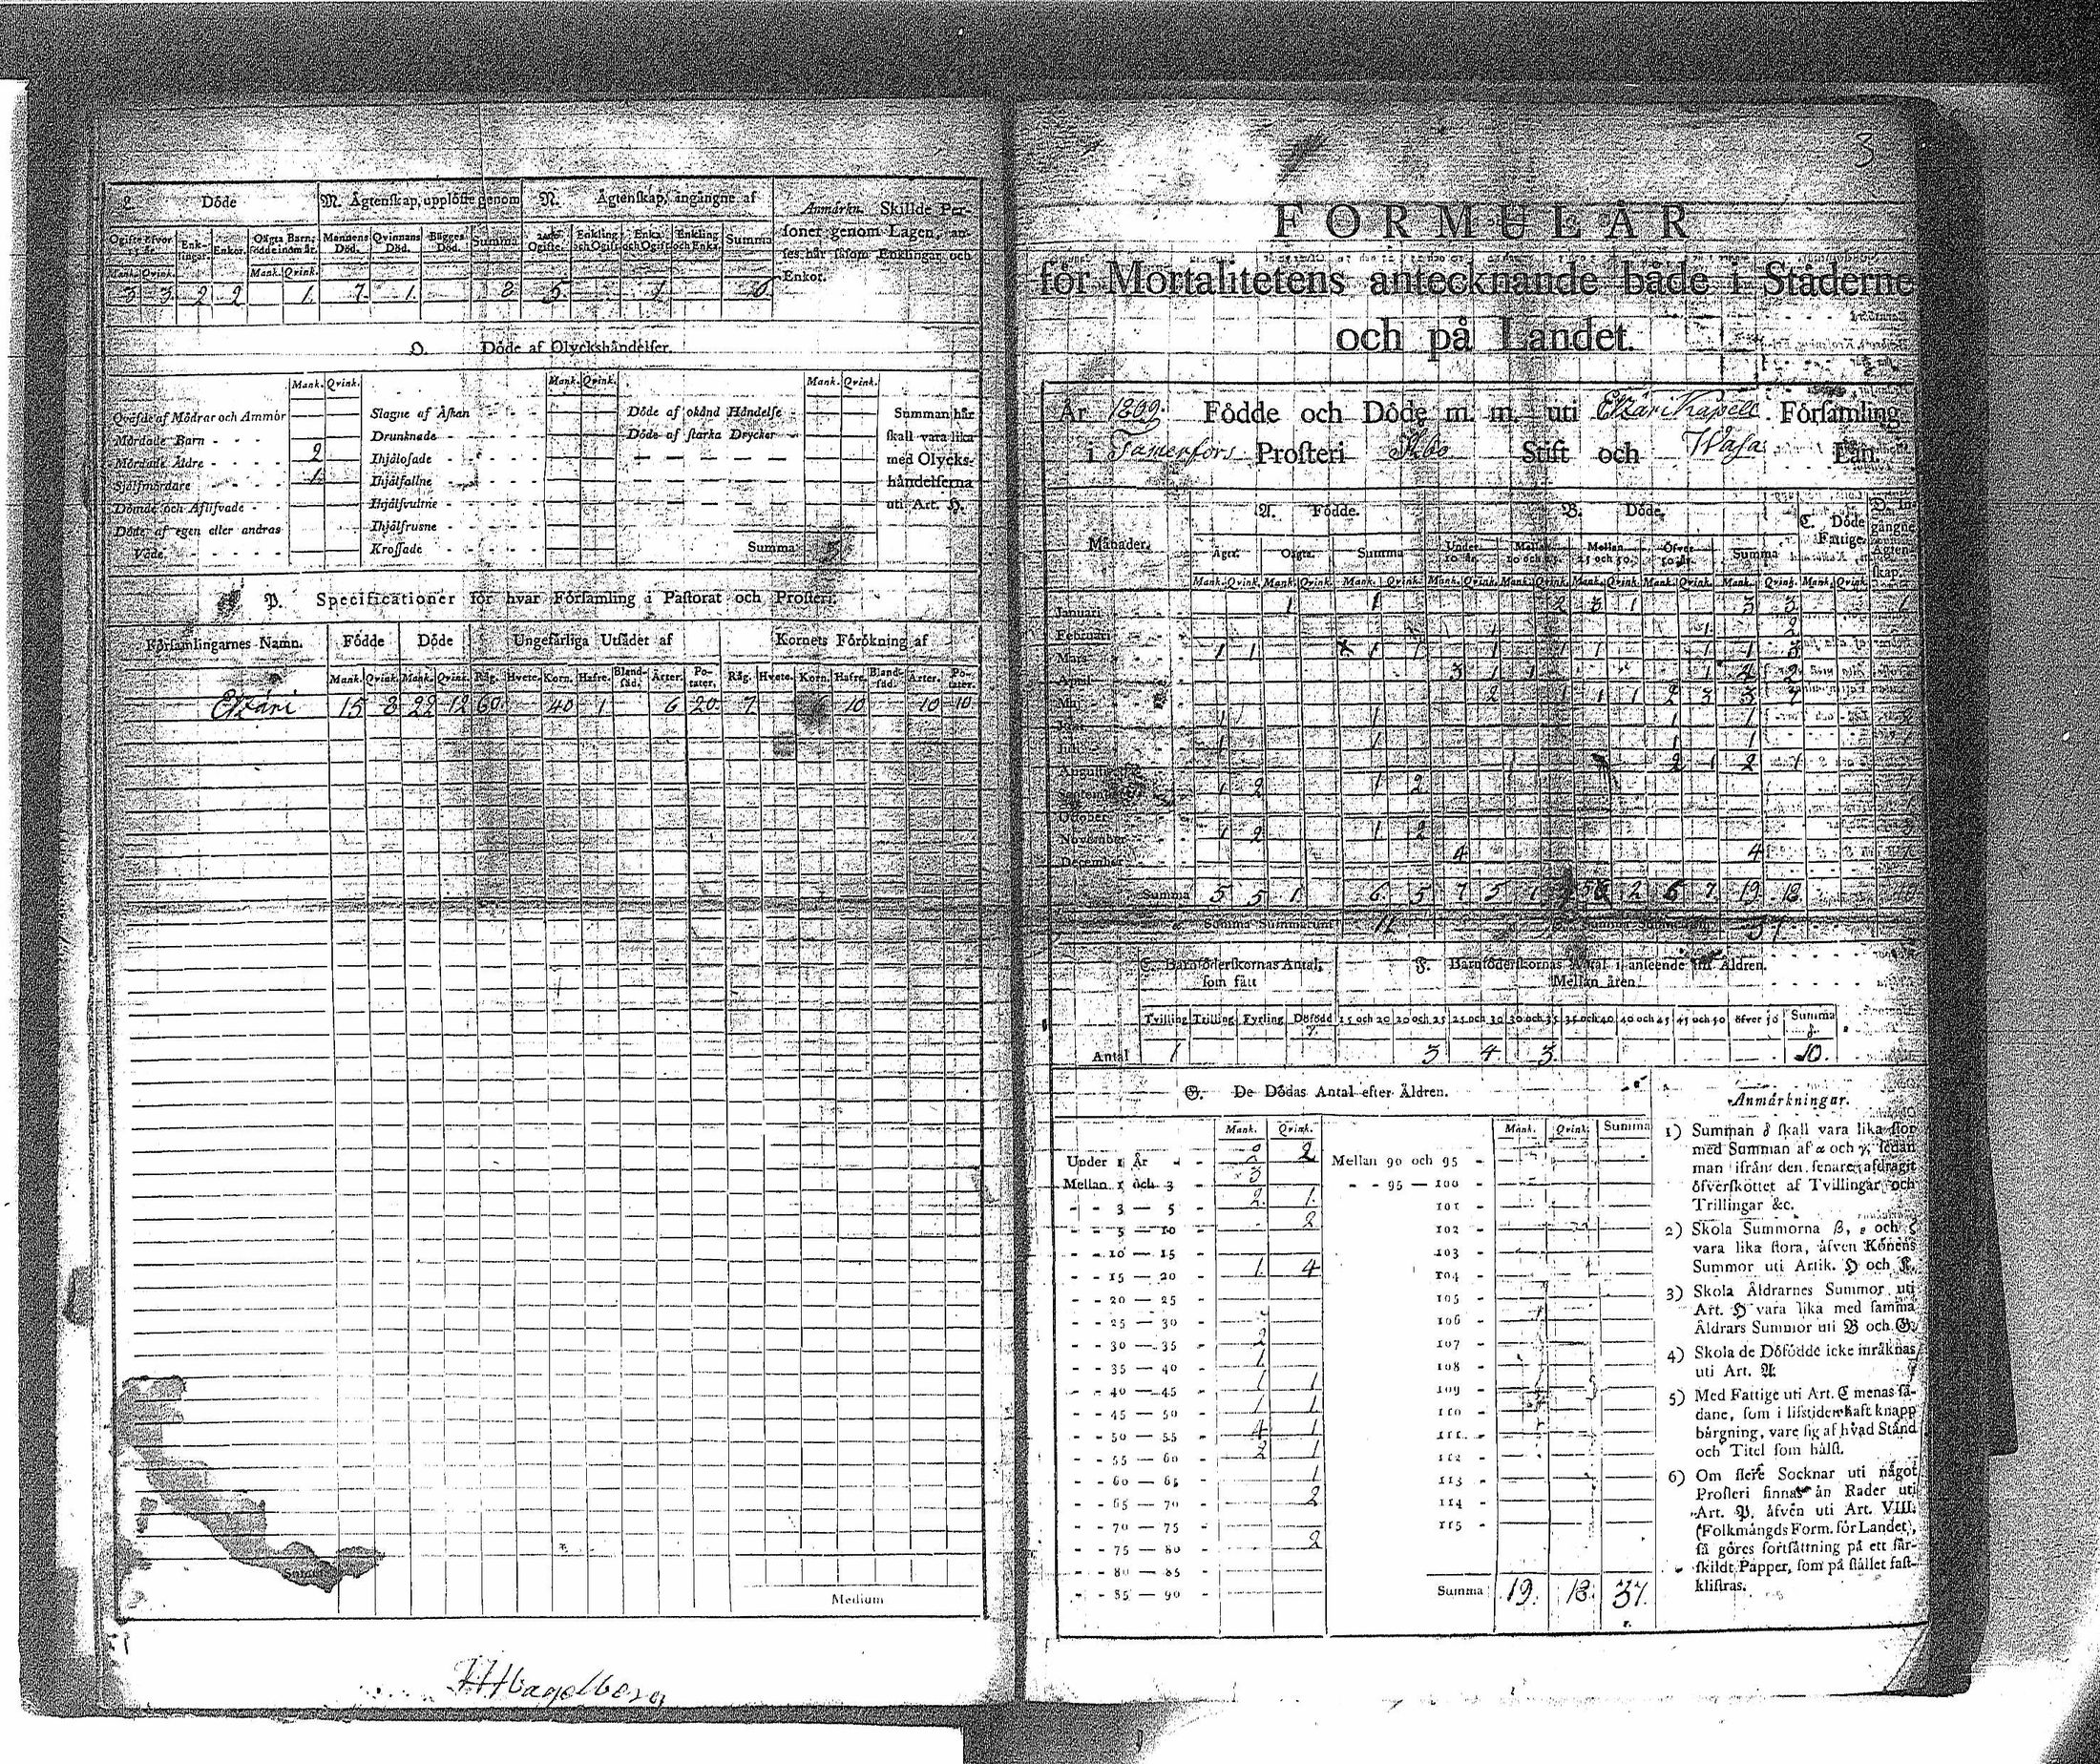 L. Döde
M. Ägtenskap, upplöste genom
N. Ägtenskap, ingångne af
Anmärkn. Skillde Per-
soner genom Lagen, an-
ses här såsom Enklingar och
Enkor.
Ogifte öfver 15 år. Enk-lingar. Enkor. Oägta Barn, födde inom år. Mannens Död. Qvinnans Död. Bägges Död. Summa Ogifte. Enkling och Ogift Enka och Ogift Enkling och Enka Summa
Mank. Qvink. Mank. Qvink.
3 3 2 2 1. 7. 1. 8 5. 1 6
O. Döde af Olyckshändelser.
Mank. Qvink. Mank. Qvink. Mank. Qvink.
Qväfde af Mödrar och Ammor
Mördade Barn
Mördade Äldre 2
Själfmördare 1
Dömde och Aflifvade
Döde af egen eller andras
Våde.
Slagne af Åskan
Drunknade
Ihjälosade
Ihjälfallne
Ihjälsvultne
Ihjälfrusne
Krossade
Döde af okänd Händelse
Döde af starka Drycker
Summan här
skall vara lika
med Olycks-
händelserna
uti Art. H.
Summa 3
P. Specificationer för hvar Församling i Pastorat och Prosteri.
Församlingarnes Namn. Födde Döde Ungefärliga Utsådet af Kornets Förökning af
Mank. Qvink. Mank. Qvink. Råg. Hvete. Korn. Hafre. Bland-säd. Ärter. Po-tater. Råg. Hvete. Korn. Hafre. Bland-säd. Ärter. Po-tater.
Etzäri 15 8 22 12 60. 40 1 6 20. 7. 6 10 10 10
Medium
3
FORMULÄR
för Mortalitetens antecknande både i Städerne
och på Landet.
År 1809. Födde och Döde m. m. uti Etzäri Kapell Församling
i Tamerfors Prosteri Åbo Stift och Wasa Län.
A. Födde. B. Döde. C. Döde Fattige. D. In-gångne Ägten-skap.
Månader. Ägta. Oägta. Summa Under 10 år. Mellan 10 och 25. Mellan 25 och 50. Öfver 50 år. Summa
Mank. Qvink. Mank. Qvink. Mank. Qvink. Mank. Qvink. Mank. Qvink. Mank. Qvink. Mank. Qvink. Mank. Qvink. Mank. Qvink.
Januari 1 1 2 3 1 3 3
Februari 1 1 2
Mars 1 1 1 1 1 1 1 1 1 3
April 3 1 1 1 4 2
Maj 2 1 1 1 2 3 3 7
Juni 1 1 1 1
Juli 1 1 1 1
Augusti 2 1 2 1
September 1 2 1 2
October
November 1 2 1 2
December 4 4
Summa 5 5 1 6. 5 7 5 1 2 6 7. 19. 18
Summa Summarum 11 Summa Summarum 37.
E. Barnföderskornas Antal, som fått
F. Barnföderskornas Antal i anseende till Åldren.
Mellan åren.
Tvilling Trilling Fyrling Döfödd 15 och 20 20 och 25 25 och 30 30 och 35 35 och 40 40 och 45 45 och 50 öfver 50 Summa
Antal 1 3 4 3. 10.
G. De Dödas Antal efter Åldren.
Mank. Qvink. Mank. Qvink. Summa
Under 1 År 2 2 Mellan 90 och 95
Mellan 1 och 3 3 95 — 100
3 — 5 2. 1. 101
5 — 10 2 102
10 — 15 103
15 — 20 1. 4 104
20 — 25 105
25 — 30 106
30 — 35 2 107
35 — 40 1. 108
40 — 45 1 1 109
45 — 50 1 1 110
50 — 55 4 1 111
55 — 60 2 1 112
60 — 65 1 113
65 — 70 2 114
70 — 75 115
75 — 80 2
80 — 85
85 — 90 Summa 19. 18. 37.
Anmärkningar.
1) Summan δ skall vara lika stor
med Summan af α och γ, sedan
man ifrån den senare afdragit
öfverskottet af Tvillingar och
Trillingar &c.
2) Skola Summorna β, ε och ζ
vara lika stora, äfven Könens
Summor uti Artik. H och K.
3) Skola Åldrarnes Summor uti
Art. H vara lika med samma
Åldrars Summor uti B och G.
4) Skola de Döfödde icke inräknas
uti Art. A.
5) Med Fattige uti Art. C menas så-
dane, som i lifstiden haft knapp
bärgning, vare sig af hvad Stånd
och Titel som hälst.
6) Om flere Socknar uti något
Prosteri finnas än Rader uti
Art. P. äfven uti Art. VIII.
(Folkmängds Form. för Landet),
så göres fortsättning på ett sär-
skildt Papper, som på stället fast-
klistras.